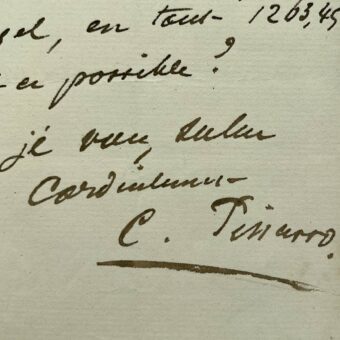 en tout 1263,45
possible?
je vous salue
Cordialement
C. Pissarro.